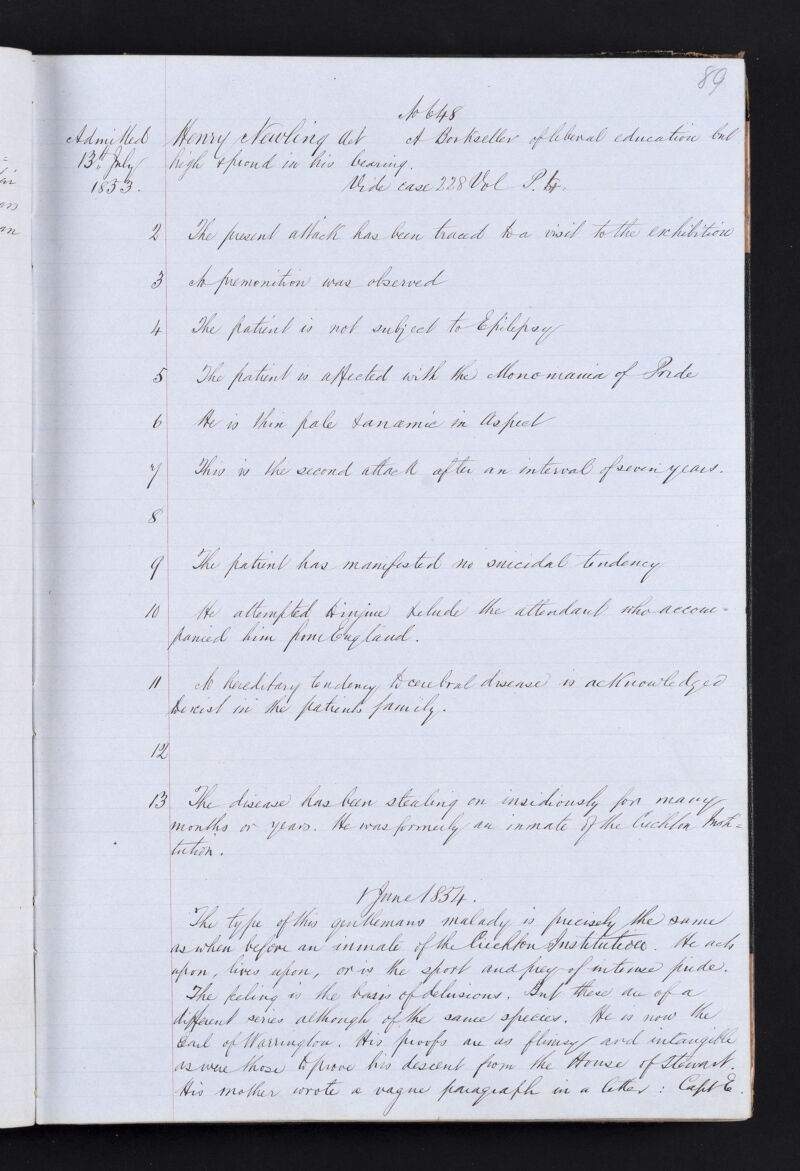 89
No 648
Admitted Henry Newling Aet A Bookseller of liberal education but
13th July high & proud in his bearing.
1853. Vide case 228 Vol P. 4.
2 The present attack has been traced to a visit to the exhibition
3 No premonition was observed
4 The patient is not subject to Epilepsy
5 The patient is affected with the Monomania of Pride
6 He is thin pale & anæmic in Aspect
7 This is the second attack after an interval of seven years.
8
9 The patient has manifested no suicidal tendency
10 He attempted to injure & elude the attendant who accom=
panied him from England.
11 A hereditary tendency to cerebral disease is acknowledged
to exist in the patients family.
12
13 The disease has been stealing on insidiously for many
months or years. He was formerly an inmate of the Crichton Insti=
tution.
1 June 1854.
The type of this gentlemans malady is precisely the same
as when before an inmate of the Crichton Institution. He acts
upon, lives upon, or is the sport and prey of intense pride.
The feeling is the basis of delusions. But these are of a
different series although of the same species. He is now the
Earl of Warrington. His proofs are as flimsy and intangible
as were those to prove his descent from the House of Stewart.
His mother wrote a vague paragraph in a letter: Capt E.